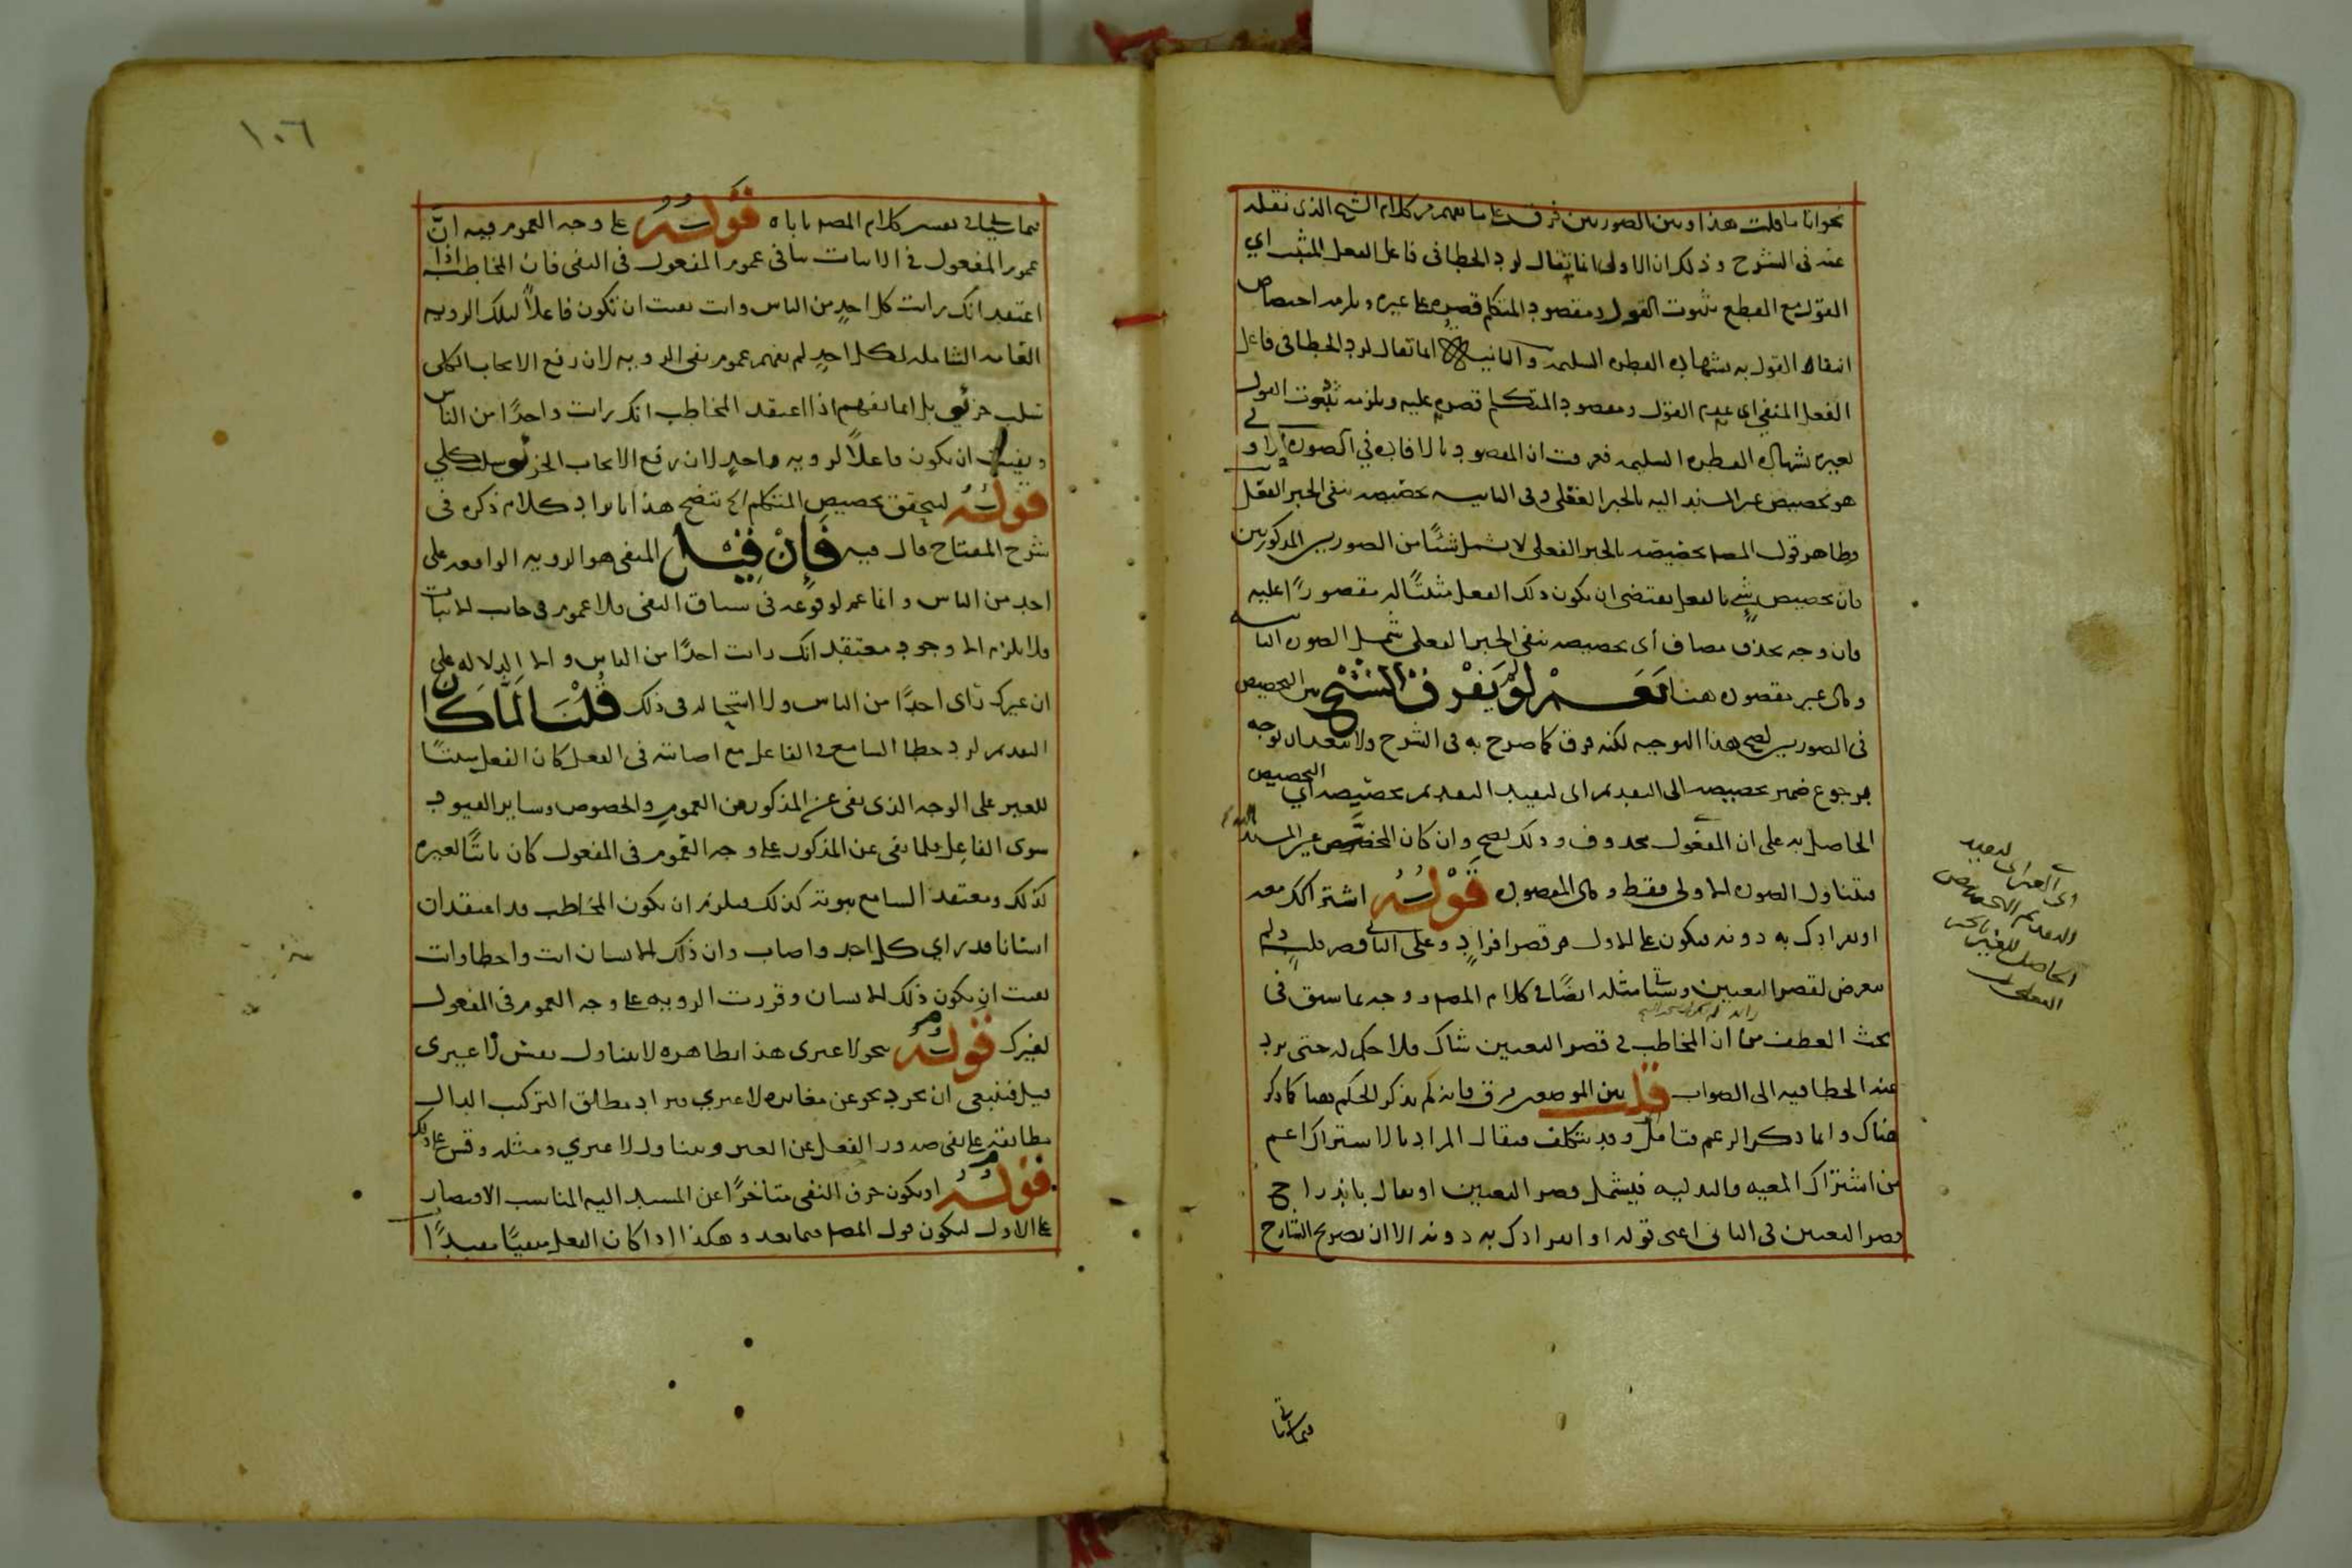 نحو انا ما قلت هذا وبين الصورتين فرق على ما يفهم من كلام الشيخ الذى نقله
عنه فى الشرح وذلك ان الاولى انما يقال لرد الخطا فى فاعل الفعل المثبت اي
القول مع القطع بثبوت القول ومقصود المتكلم قصره على غيره ويلزمه اختصاص
انتفاء القول به بشهادة الفطرة السليمة والثانية انما تقال لرد الخطا فى فاعل
الفعل المنفي اى عدم القول ومقصود المتكلم قصره عليه ويلزمه ثبوت القول
لغيره بشهادة الفطرة السليمة فعرفت ان المقصود بالافادة في الصورة الاولى
هو تخصيص غير المسند اليه بالخبر الفعلى وفى الثانية تخصيصه بنفى الخبر الفعلى
وظاهر قول المصـ تخصيصه بالخبر الفعلى لا يشمل شئًا من الصورتين المذكورتين
فان تخصيص شيء بالفعل يقتضى ان يكون ذلك الفعل مثبتًا له مقصورًا عليه
فان وجه بحذف مضاف أى تخصيصه بنفى الخبر الفعلى شمل الصورة الثانية
وهى غير مقصودة هنا نعم لو لم يفرق الشيخ بين التخصيص
فى الصورتين لصح هذا التوجيه لكنه فرق كما صرح به فى الشرح ولا يبعد ان يوجه
برجوع ضمير تخصيصه الى التقديم اى ليفيد التقديم تخصيصه أي التخصيص
الحاصل به على ان المفعول محذوف وذلك يصح وان كان المخصص غير المسند اليه
فيتناول الصورة الاولى فقط وهى المقصودة قوله اشتراكك معه
او انفرادك به دونه فيكون على الاول هو قصر افراد وعلى الثانى قصر قلب ولم
يتعرض لقصر التعيين وسيأتى مثله ايضًا في كلام المصـ ووجه بما سبق فى
بحث العطف من ان المخاطب فى قصر التعيين شاك فلا حكم له حتى يرد
عند الخطا فيه الى الصواب قلت بين الموضعين فرق فانه لم يذكر الحكم ههنا كما ذكر
هناك وانما ذكر الزعم فتامل وقد يتكلف فيقال المراد بالاشتراك اعم
من اشتراك المعيه والبدليه فيشمل قصر التعيين او يقال باندراج
قصر التعيين فى الثانى اعنى قوله او انفرادك به دونه الا ان تصريح الشارح
اى الغير اى ليفيد
التقديم التخصيص
الحاصل للغير بالخبر
الفعلى
فيما سياتى
١٠٦
فيما سياتى في تفسير كلام المصـ ياباه قوله على وجه العموم فيه انّ
عموم المفعول فى الاثبات ينافى عموم المفعول فى النفى فان المخاطب اذا
اعتقد انك رايت كل احدٍ من الناس وانت نفيت ان تكون فاعلاً لتلك الرويه
العامه الشامله لكل احدٍ لم يفهم عموم نفى الرويه لان رفع الايجاب الكلى
سلب جزئي بل انما يفهم اذا اعتقد المخاطب انك رايت واحدًا من الناس
ونفيت ان تكون فاعلاً لرويه واحدٍ لان رفع الايجاب الجزئى سلب كلي
قوله ليحقق تخصيص المتكلم الخ يتضح هذا بايراد كلام ذكره فى
شرح المفتاح قال فيه فان قيل المنفى هو الرويه الواقعه على
احد من الناس وانما عم لوقوعه فى سياق النفى فلا عموم فى جانب الاثبات
فلا يلزم الا وجود معتقد انك رايت احدًا من الناس والا الدلاله على
ان غيرك رأى احدًا من الناس ولا استحاله فى ذلك قلنا لما كان
التقديم لرد خطا السامع فى الفاعل مع اصابته فى الفعل كان الفعل مثبتًا
للغير على الوجه الذى نفى عن المذكور من العموم والخصوص وساير القيود
سوى الفاعل فلما نفى عن المذكور على وجه العموم فى المفعول كان ثابتًا لغيره
كذلك ومعتقد السامع ثبوته كذلك فيلزم ان يكون المخاطب قد اعتقد ان
انسانا قد راى كل احد واصاب وان ذلك الانسان انت واخطا وانت
نفيت ان يكون ذلك الانسان وقررت الرويه على وجه العموم فى المفعول
لغيرك قوله نحو لا غيرى هذا بظاهره لا يتناول نفس لا غيرى
قيل فينبغى ان يجرد نحو عن مغايره لا غيري ويراد مطلق التركيب الدال
مطابقة على نفى صدور الفعل عن الغير ويتناول لا غيري ومثله وقس على ذلك
قوله او يكون حرف النفى متاخرًا عن المسند اليه المناسب الاقتصار
على الاول ليكون قول المصـ فيما بعد وهكذا اذا كان الفعل منفيًا مقيدًا